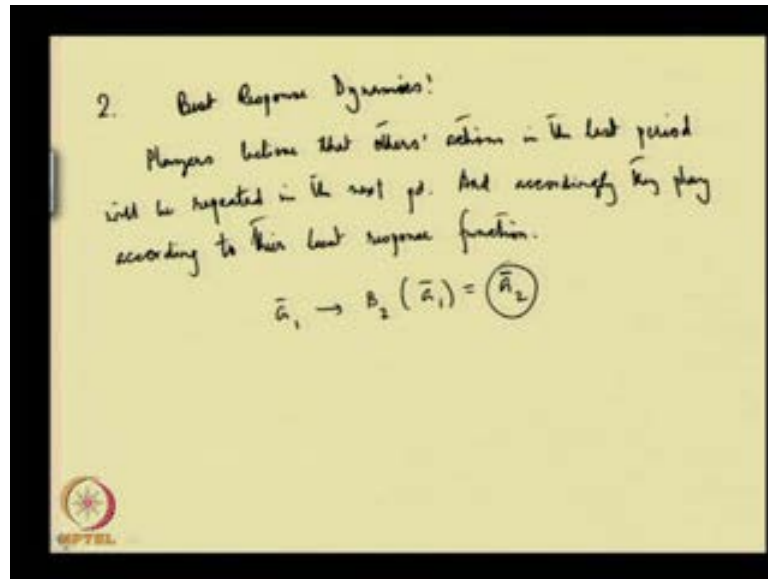 2. Best Response Dynamics:
Players believe that others' actions in the last period
will be repeated in the next pd. And accordingly they play
according to their best response function.
ā₁ → B₂ (ā₁) = ā₂
NPTEL